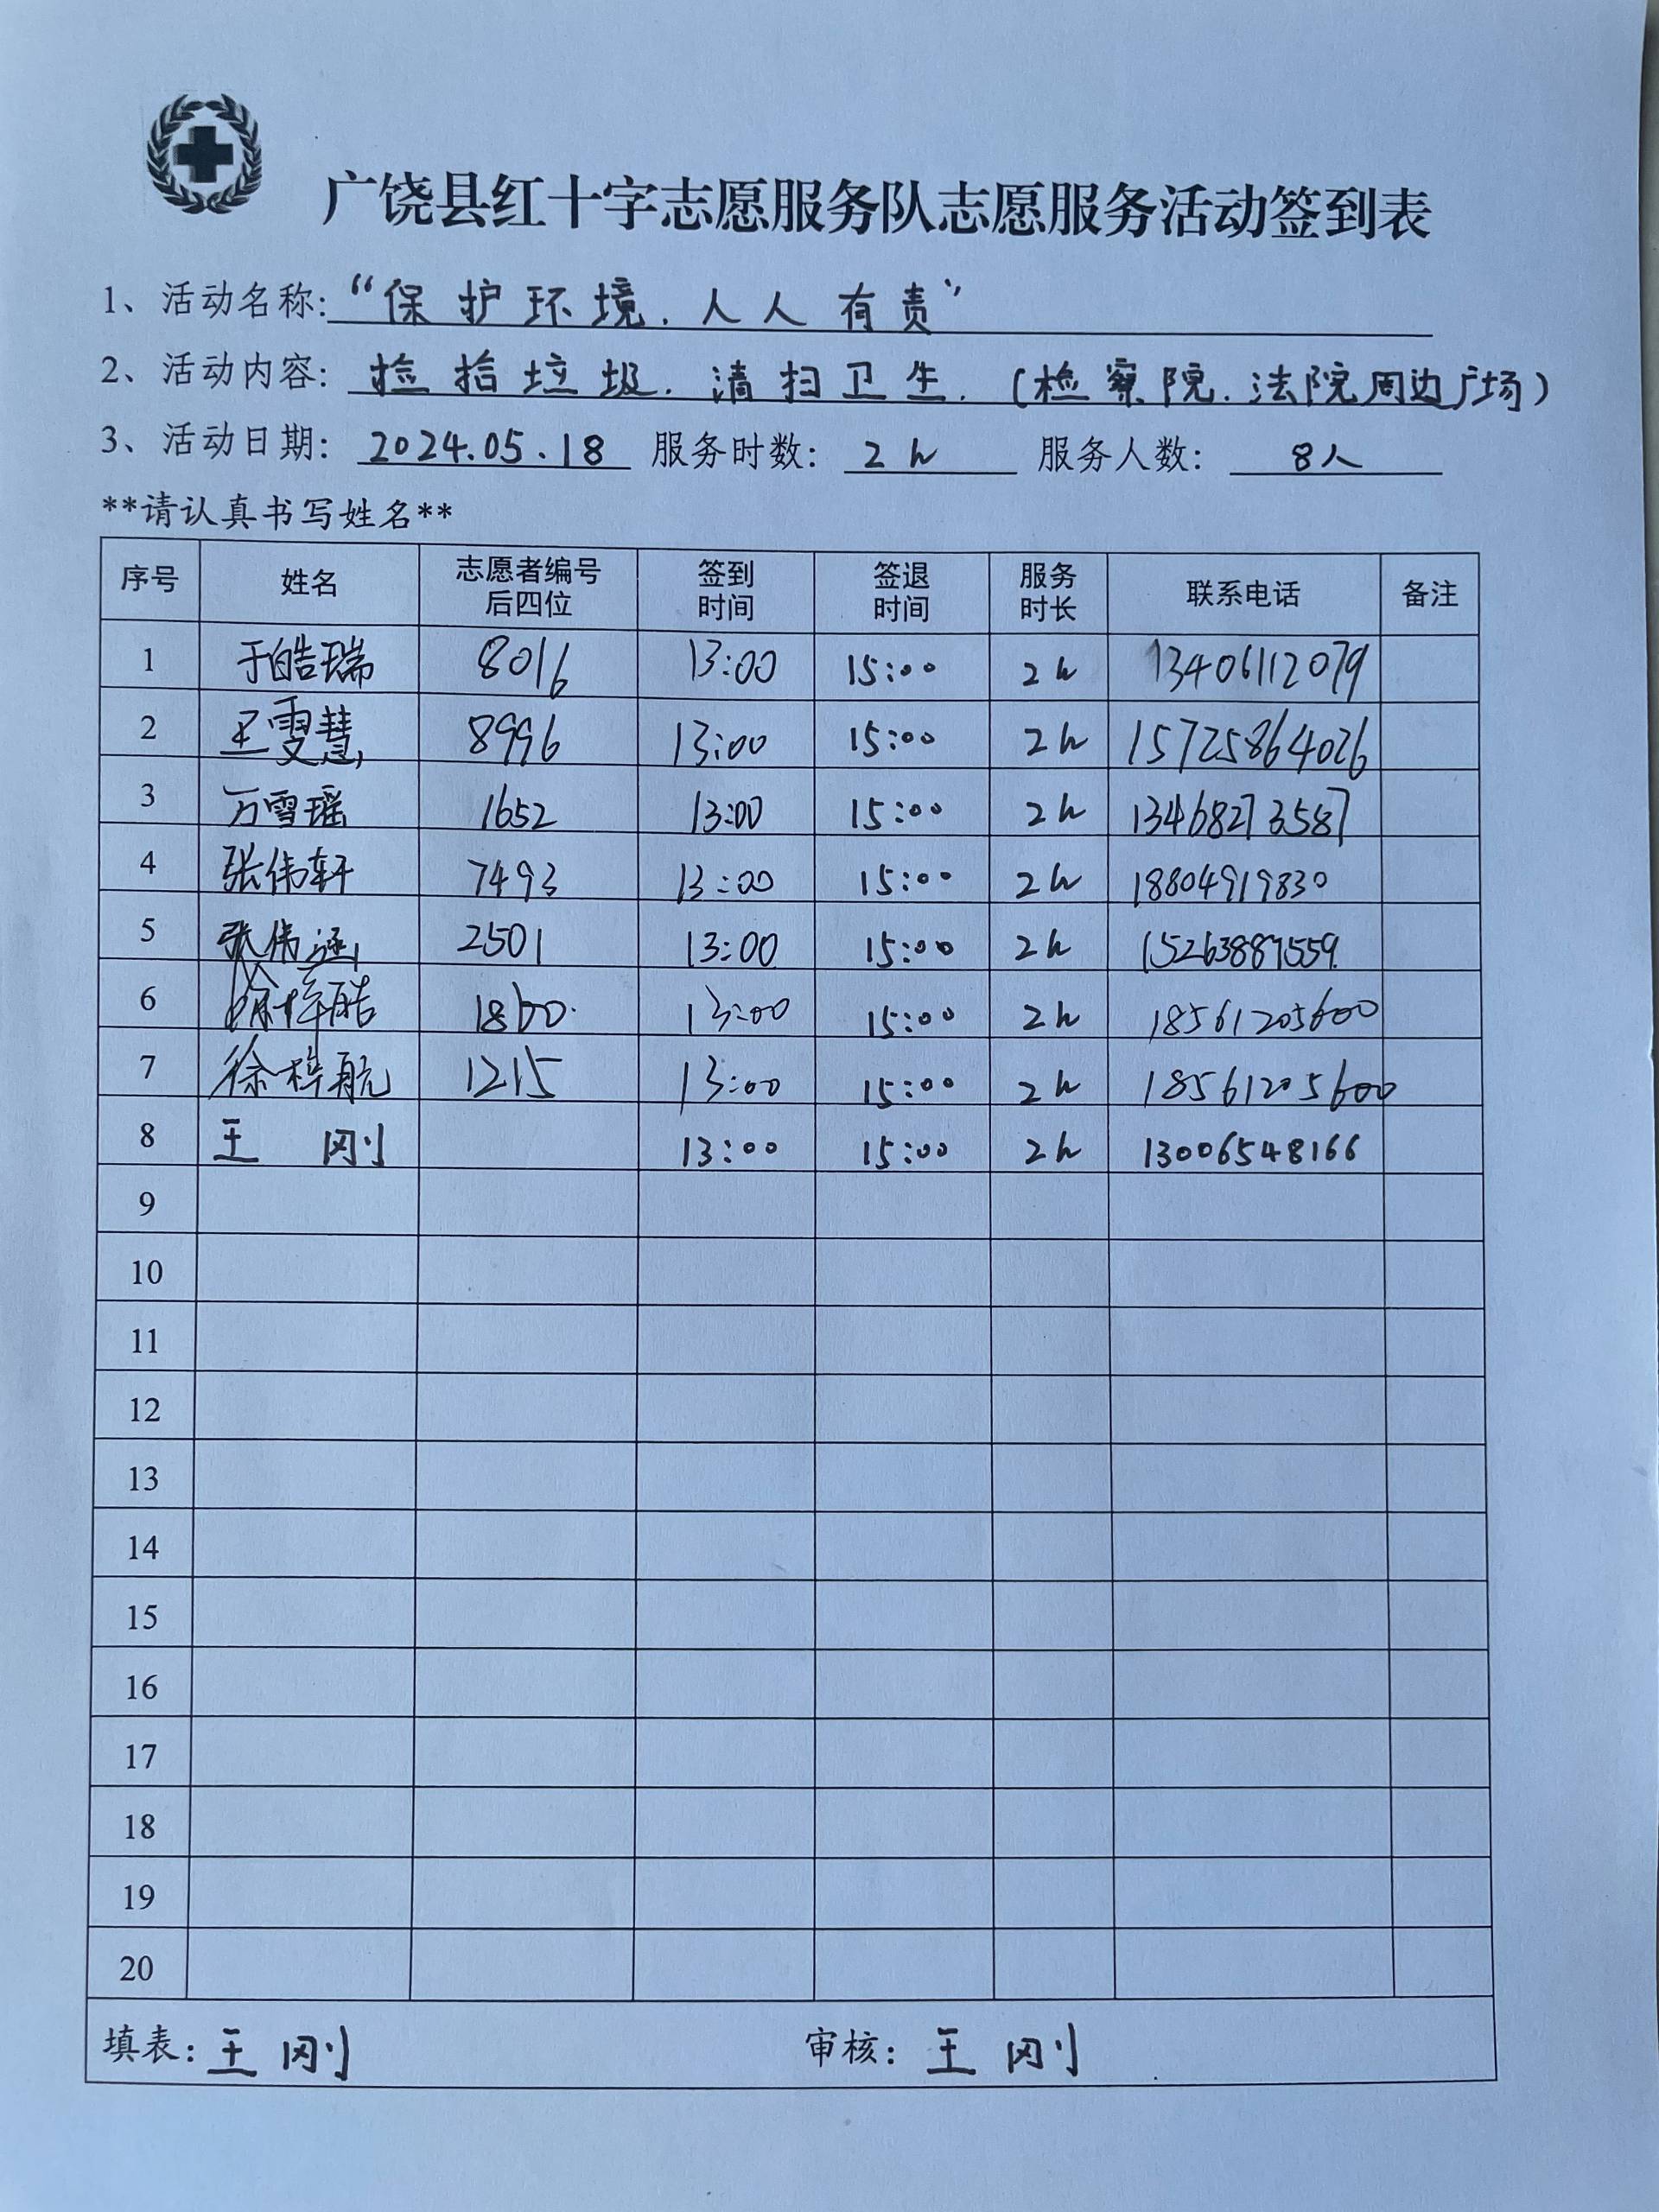 广饶县红十字志愿服务队志愿服务活动签到表
1、活动名称:“保护环境.人人有责”
2、活动内容: 捡拾垃圾.清扫卫生.(检察院.法院周边广场)
3、活动日期: 2024.05.18 服务时数: 2h 服务人数: 8人
**请认真书写姓名**
序号 姓名 志愿者编号后四位 签到时间 签退时间 服务时长 联系电话 备注
1 于皓瑞 8016 13:00 15:00 2h 13406112079
2 王雯慧 8996 13:00 15:00 2h 15725864026
3 万雪瑶 1652 13:00 15:00 2h 13468273587
4 张伟轩 7493 13:00 15:00 2h 18804919830
5 张伟涵 2501 13:00 15:00 2h 15263887559
6 徐梓皓 1800 13:00 15:00 2h 18561205600
7 徐梓航 1215 13:00 15:00 2h 18561205600
8 王刚 13:00 15:00 2h 13006548166
9
10
11
12
13
14
15
16
17
18
19
20
填表: 王刚 审核: 王刚